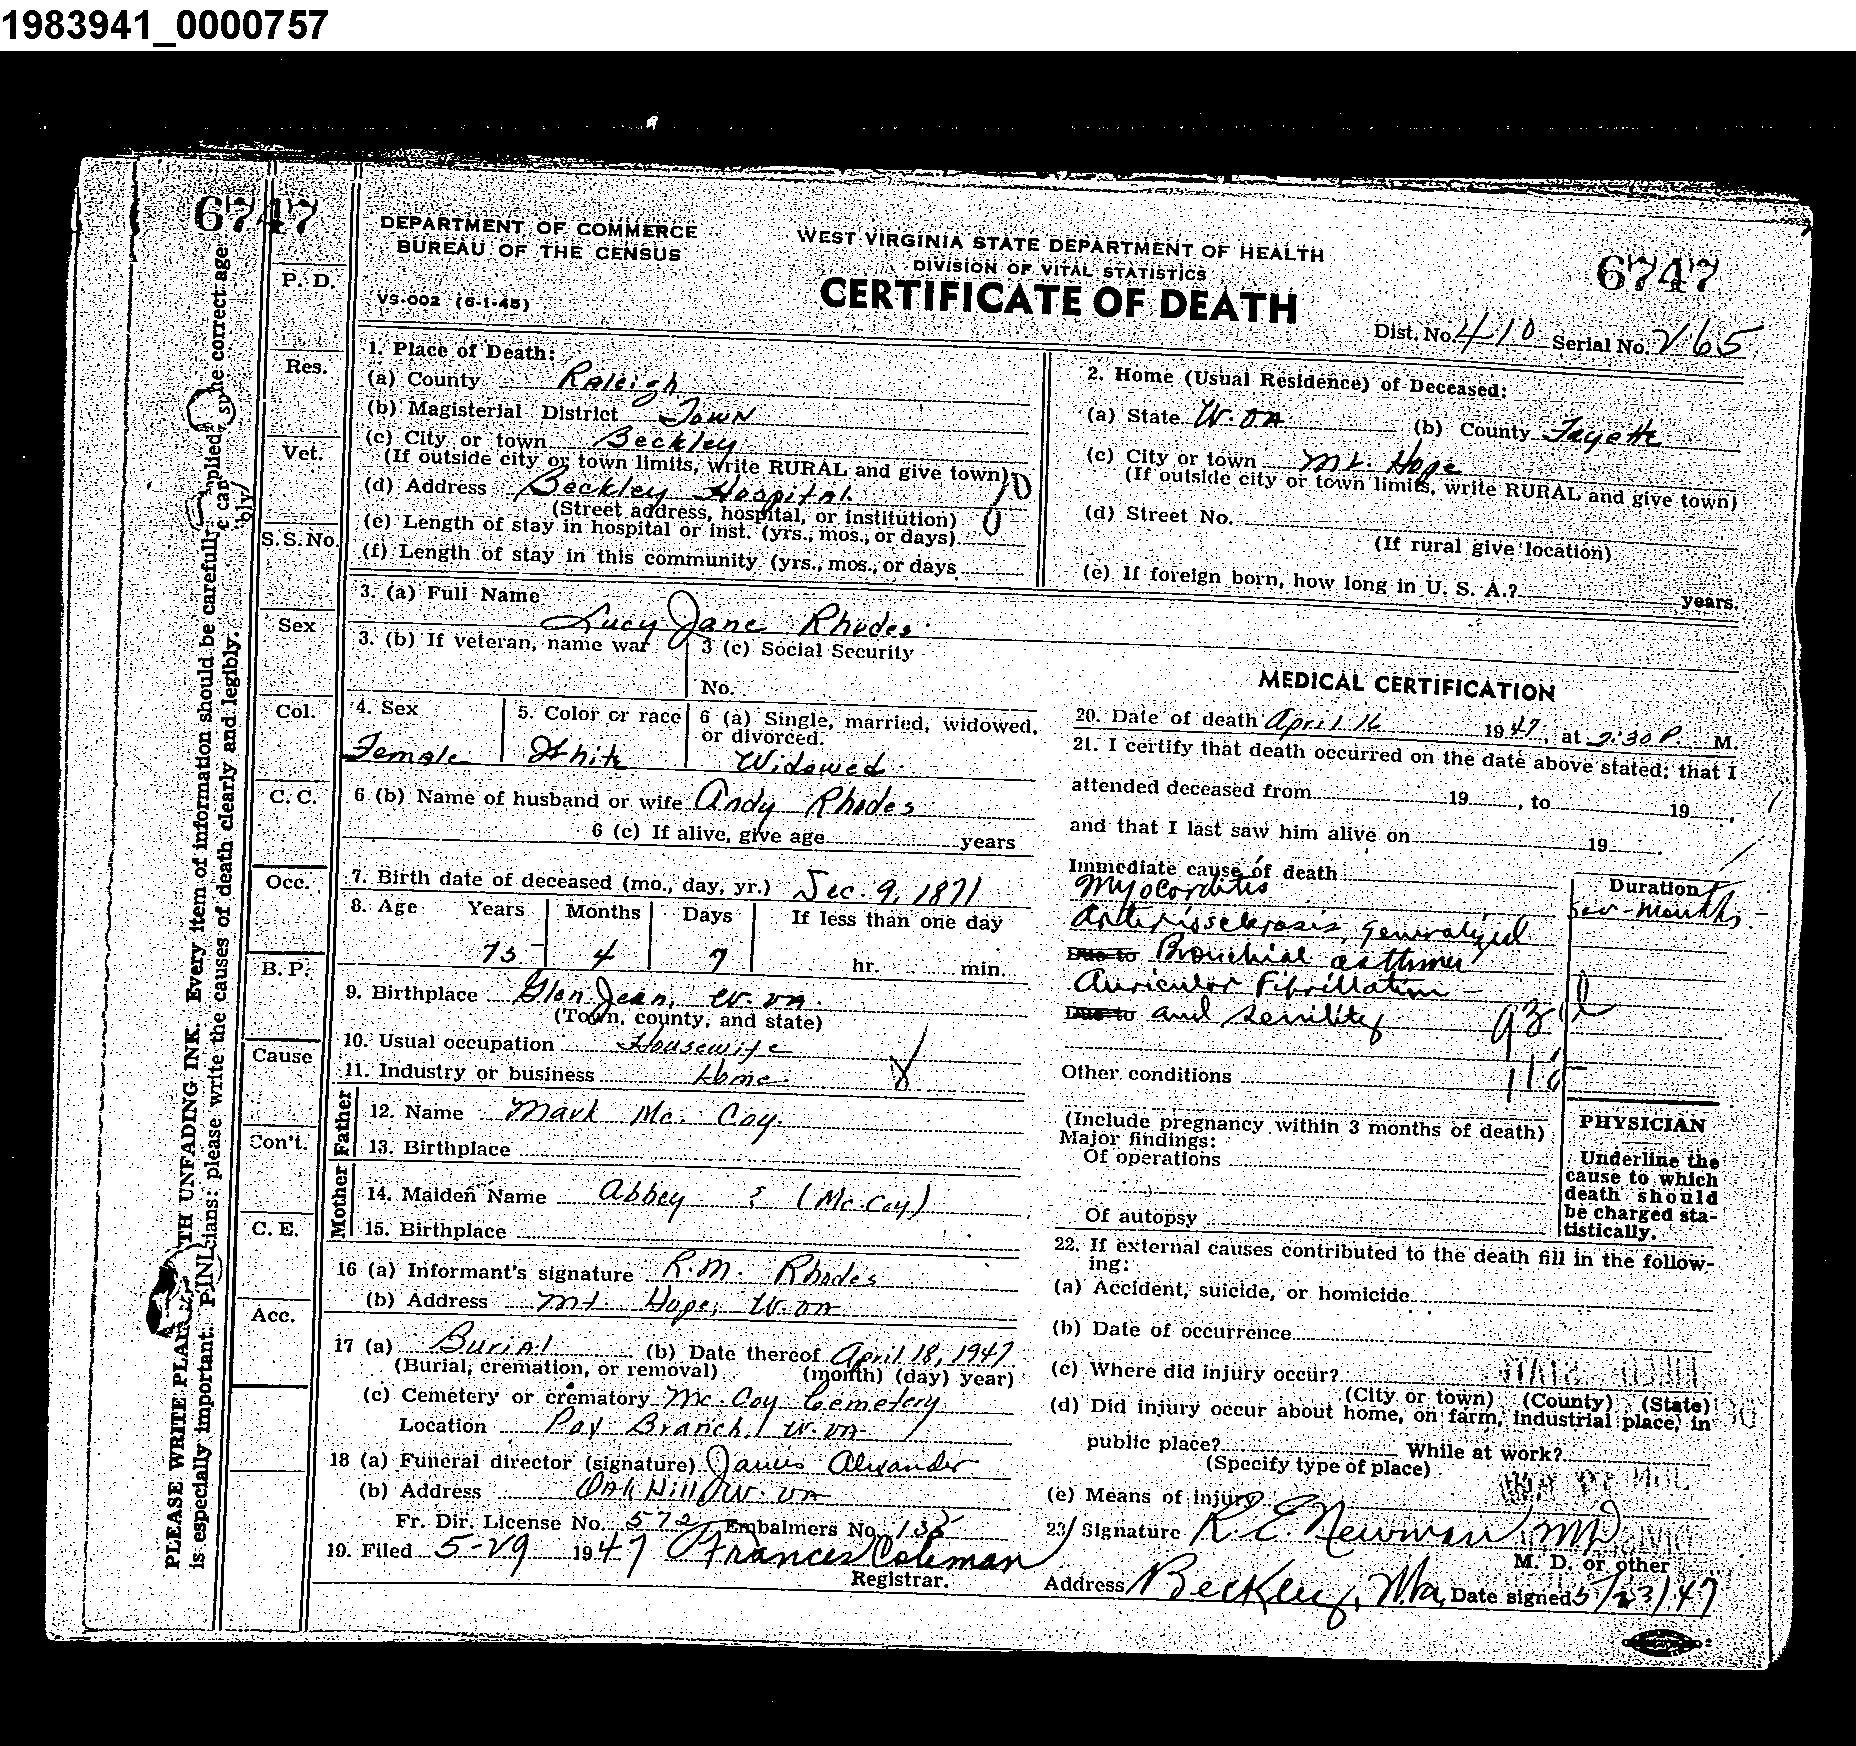 1983941_0000757
6747
DEPARTMENT OF COMMERCE
BUREAU OF THE CENSUS
VS-002 (6-1-45)
WEST VIRGINIA STATE DEPARTMENT OF HEALTH
DIVISION OF VITAL STATISTICS
CERTIFICATE OF DEATH
6747
Dist. No. 410 Serial No. 265
PLEASE WRITE PLAINLY WITH UNFADING INK. Every item of information should be carefully supplied. The correct age
is especially important. Physicians: please write the causes of death clearly and legibly.
P. D.
Res.
Vet.
S. S. No.
Sex
Col.
C. C.
Occ.
B. P.
Cause
Con't.
C. E.
Acc.
1. Place of Death:
(a) County Raleigh
(b) Magisterial District Town
(c) City or town Beckley
(If outside city or town limits, write RURAL and give town)
(d) Address Beckley Hospital
(Street address, hospital, or institution)
(e) Length of stay in hospital or inst. (yrs., mos., or days)
(f) Length of stay in this community (yrs., mos., or days
2. Home (Usual Residence) of Deceased:
(a) State W. Va (b) County Fayette
(c) City or town Mt. Hope
(If outside city or town limits, write RURAL and give town)
(d) Street No.
(If rural give location)
(e) If foreign born, how long in U. S. A.? years.
3. (a) Full Name
Lucy Jane Rhodes
3. (b) If veteran, name war
3 (c) Social Security
No.
4. Sex
Female
5. Color or race
White
6 (a) Single, married, widowed,
or divorced.
Widowed
6 (b) Name of husband or wife Andy Rhodes
6 (c) If alive, give age years
7. Birth date of deceased (mo., day, yr.) Dec. 9, 1871
8. Age Years Months Days If less than one day
75 4 7 hr. min.
9. Birthplace Glen Jean, W. Va.
(Town, county, and state)
10. Usual occupation Housewife
11. Industry or business Home
Father
12. Name Mark Mc. Coy.
13. Birthplace
Mother
14. Maiden Name Abbey ? (McCoy)
15. Birthplace
16 (a) Informant's signature R.M. Rhodes
(b) Address Mt. Hope, W. Va
17 (a) Burial (b) Date thereof April 18, 1947
(Burial, cremation, or removal) (month) (day) year)
(c) Cemetery or crematory Mc. Coy Cemetery
Location Pax Branch, W. Va
18 (a) Funeral director (signature) James Alexander
(b) Address Oak Hill W. Va
Fr. Dir. License No. 572 Embalmers No. 135
19. Filed 5-29 1947 Frances Coleman
Registrar.
MEDICAL CERTIFICATION
20. Date of death April 16 1947, at 2:30 P. M.
21. I certify that death occurred on the date above stated; that I
attended deceased from 19 , to 19 ,
and that I last saw him alive on 19 .
Immediate cause of death
Myocorditis
Arteriosclerosis, generalized
Due to Bronchial asthma
Auricular Fibrillation
Due to and senility
Duration
sev-months
Other conditions
(Include pregnancy within 3 months of death)
Major findings:
Of operations
Of autopsy
PHYSICIAN
Underline the
cause to which
death should
be charged sta-
tistically.
22. If external causes contributed to the death fill in the follow-
ing:
(a) Accident, suicide, or homicide
(b) Date of occurrence
(c) Where did injury occur?
(City or town) (County) (State)
(d) Did injury occur about home, on farm, industrial place, in
public place? While at work?
(Specify type of place)
(e) Means of injury
23 Signature R. E. Newman, MD
M. D. or other
Address Beckley, W.Va. Date signed 5/23/47